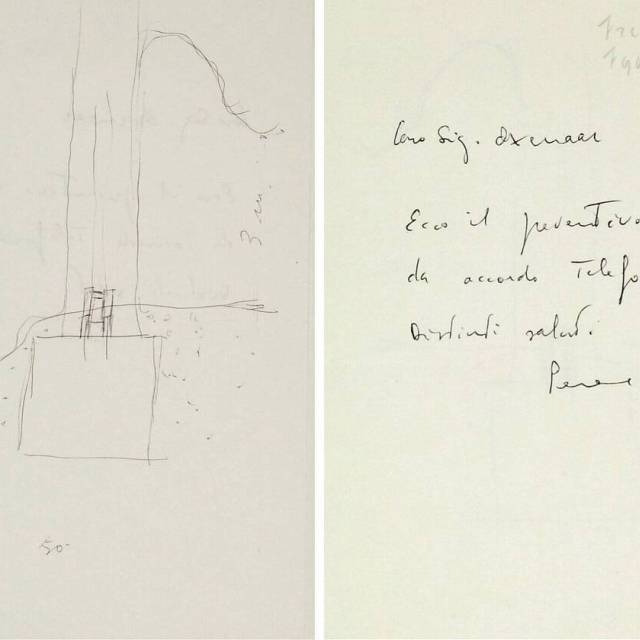 3 cm.
50
Caro Sig. Oxenaar
Ecco il preventivo
da accordo Telefo
Distinti saluti